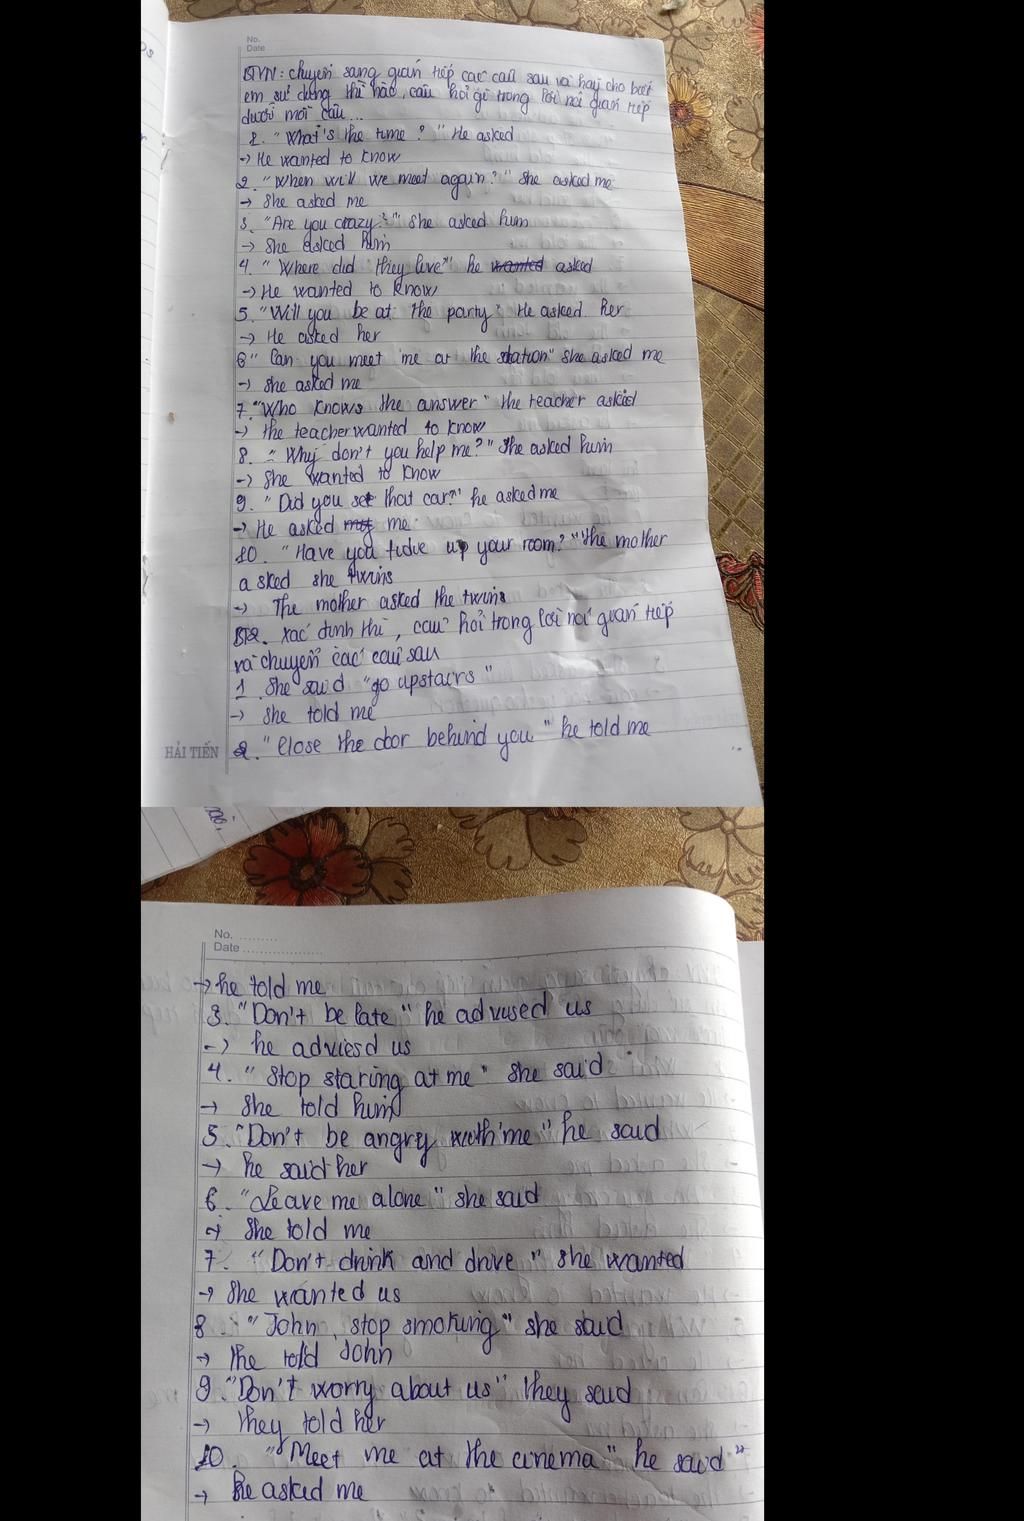 No.
Date
BTVN: chuyển sang gián tiếp các câu sau và hãy cho biết
em sử dụng thì nào, câu hỏi gì trong lời nói gián tiếp
dưới mỗi câu...
1. "What's the time?" He asked
-> He wanted to know
2. "When will we meet again?" She asked me
-> She asked me
3. "Are you crazy?" She asked him
-> She asked him
4. "Where did they live" he wanted asked
-> He wanted to know
5. "Will you be at the party" He asked her
-> He asked her
6 "Can you meet me at the station" she asked me
-> she asked me
7. "Who knows the answer" the teacher asked
-> the teacher wanted to know
8. "Why don't you help me?" She asked him
-> She wanted to know
9. "Did you see that car?" he asked me
-> He asked me
10. "Have you tidie up your room?" the mother
asked she twins
-> The mother asked the twins
BT2. xác định thì, câu hỏi trong lời nói gián tiếp
và chuyển các câu sau
1. She said "go upstairs"
-> she told me
2. "Close the door behind you" he told me
HẢI TIẾN
No.
Date
-> he told me
3. "Don't be late" he advised us
-> he adviesd us
4. "Stop staring at me" she said
-> She told him
5. "Don't be angry with me" he said
-> he said her
6. "Leave me alone" she said
-> She told me
7. "Don't drink and drive" she wanted
-> She wanted us
8. "John, stop smoking" she said
-> the told John
9. "Don't worry about us" they said
-> they told her
10. "Meet me at the cinema" he said"
-> he asked me